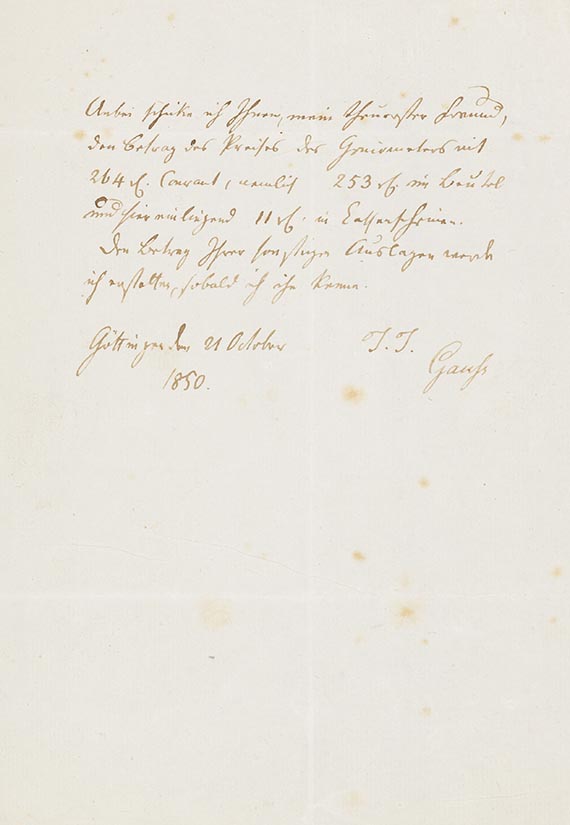 Anbei schicke ich Ihnen, mein theuerster Freund,
den Betrag des Preises des Geniometers mit
264 rth. Courant, nemlich 253 rth. im Beutel
und hier einliegend 11 rth. in Cassenscheinen.
Den Betrag Ihrer sonstigen Auslagen werde
ich erstatten, sobald ich ihn kenne.
Göttingen den 21 October
1850.
T. T.
Gauß